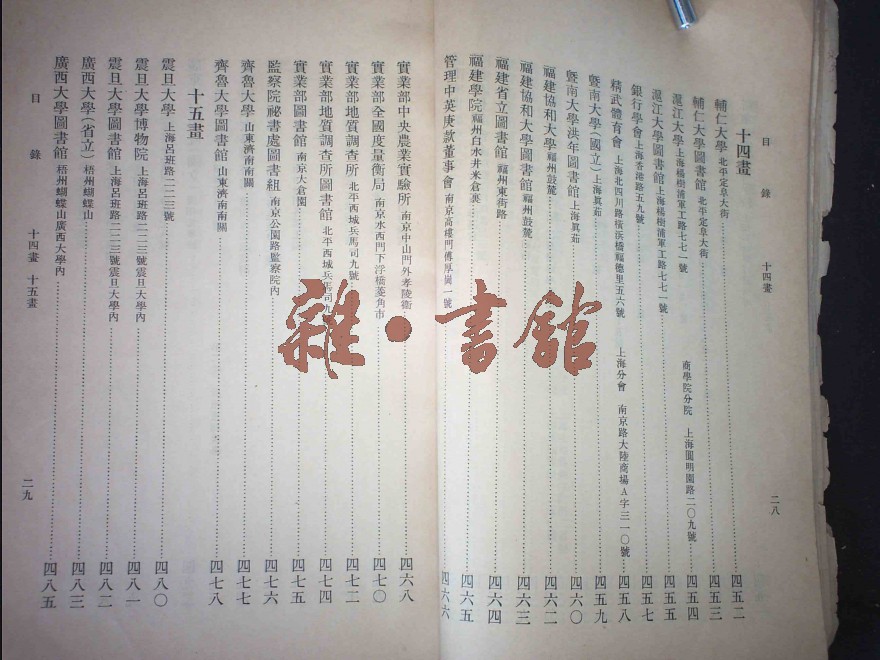 目 錄 十四畫 二八
十四畫
輔仁大學 北平定阜大街 四五二
輔仁大學圖書館 北平定阜大街 四五三
滬江大學 上海楊樹浦軍工路七七一號 商學院分院 上海圓明園路二〇九號 四五四
滬江大學圖書館 上海楊樹浦軍工路七七一號 四五五
銀行學會 上海香港路五九號 四五七
精武體育會 上海北四川路橫浜橋福德里五六號 上海分會 南京路大陸商場A字三一〇號 四五八
暨南大學(國立) 上海眞茹 四五九
暨南大學洪年圖書館 上海眞茹 四六〇
福建協和大學 福州鼓麓 四六二
福建協和大學圖書館 福州鼓麓 四六三
福建省立圖書館 福州東街路 四六四
福建學院 福州白水井米倉裏 四六五
管理中英庚款董事會 南京高樓門傅厚崗一號 四六六
實業部中央農業實驗所 南京中山門外孝陵衛 四六八
實業部全國度量衡局 南京水西門下浮橋菱角市 四七〇
實業部地質調查所 北平西城兵馬司九號 四七二
實業部地質調查所圖書館 北平西城兵馬司九 四七四
實業部圖書館 南京大倉園 四七五
監察院祕書處圖書組 南京公園路監察院內 四七六
齊魯大學 山東濟南南關 四七七
齊魯大學圖書館 山東濟南南關 四七八
十五畫
震旦大學 上海呂班路二二三號 四八〇
震旦大學博物院 上海呂班路二二三號震旦大學內 四八一
震旦大學圖書館 上海呂班路二二三號震旦大學內 四八二
廣西大學(省立) 梧州蝴蝶山 四八三
廣西大學圖書館 梧州蝴蝶山廣西大學內 四八五
目 錄 十四畫 十五畫 二九
雜·書館